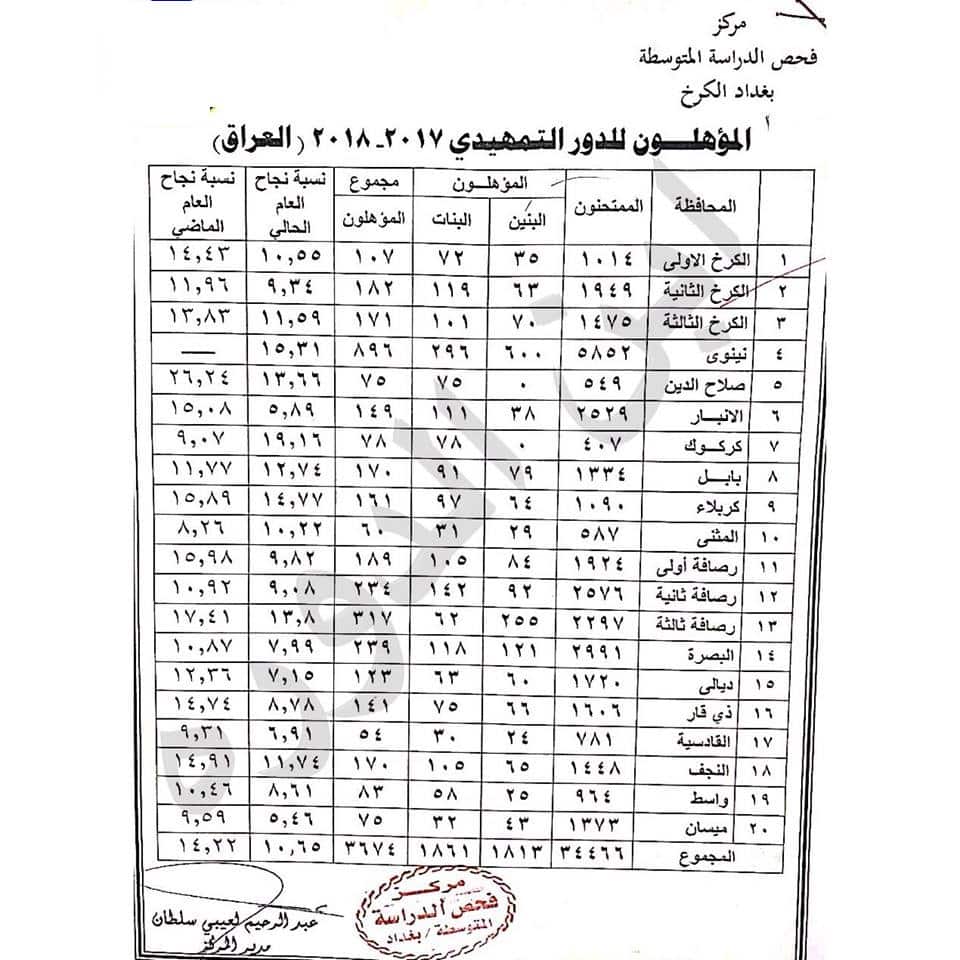 مركز
فحص الدراسة المتوسطة
بغداد الكرخ
المؤهلون للدور التمهيدي ٢٠١٧ـ٢٠١٨ (العراق)
المحافظة الممتحنون المؤهلون البنين البنات مجموع المؤهلون نسبة نجاح العام الحالي نسبة نجاح العام الماضي
١ الكرخ الاولى ١٠١٤ ٣٥ ٧٢ ١٠٧ ١٠,٥٥ ١٤,٤٣
٢ الكرخ الثانية ١٩٤٩ ٦٣ ١١٩ ١٨٢ ٩,٣٤ ١١,٩٦
٣ الكرخ الثالثة ١٤٧٥ ٧٠ ١٠١ ١٧١ ١١,٥٩ ١٣,٨٣
٤ نينوى ٥٨٥٢ ٦٠٠ ٢٩٦ ٨٩٦ ١٥,٣١ —
٥ صلاح الدين ٥٤٩ ٠ ٧٥ ٧٥ ١٣,٦٦ ٢٦,٢٤
٦ الانبار ٢٥٢٩ ٣٨ ١١١ ١٤٩ ٥,٨٩ ١٥,٠٨
٧ كركوك ٤٠٧ ٠ ٧٨ ٧٨ ١٩,١٦ ٩,٠٧
٨ بابل ١٣٣٤ ٧٩ ٩١ ١٧٠ ١٢,٧٤ ١١,٧٧
٩ كربلاء ١٠٩٠ ٦٤ ٩٧ ١٦١ ١٤,٧٧ ١٥,٨٩
١٠ المثنى ٥٨٧ ٢٩ ٣١ ٦٠ ١٠,٢٢ ٨,٢٦
١١ رصافة أولى ١٩٢٤ ٨٤ ١٠٥ ١٨٩ ٩,٨٢ ١٥,٩٨
١٢ رصافة ثانية ٢٥٧٦ ٩٢ ١٤٢ ٢٣٤ ٩,٠٨ ١٠,٩٢
١٣ رصافة ثالثة ٢٢٩٧ ٢٥٥ ٦٢ ٣١٧ ١٣,٨ ١٧,٤١
١٤ البصرة ٢٩٩١ ١٢١ ١١٨ ٢٣٩ ٧,٩٩ ١٠,٨٧
١٥ ديالى ١٧٢٠ ٦٠ ٦٣ ١٢٣ ٧,١٥ ١٢,٣٦
١٦ ذي قار ١٦٠٦ ٦٦ ٧٥ ١٤١ ٨,٧٨ ١٤,٧٤
١٧ القادسية ٧٨١ ٢٤ ٣٠ ٥٤ ٦,٩١ ٩,٣١
١٨ النجف ١٤٤٨ ٦٥ ١٠٥ ١٧٠ ١١,٧٤ ١٤,٩١
١٩ واسط ٩٦٤ ٢٥ ٥٨ ٨٣ ٨,٦١ ١٠,٤٦
٢٠ ميسان ١٣٧٣ ٤٣ ٣٢ ٧٥ ٥,٤٦ ٩,٥٩
المجموع ٣٤٤٦٦ ١٨١٣ ١٨٦١ ٣٦٧٤ ١٠,٦٥ ١٤,٢٢
مركز
فحص الدراسة
المتوسطة / بغداد
عبد الرحيم لعيبي سلطان
مدير المركز